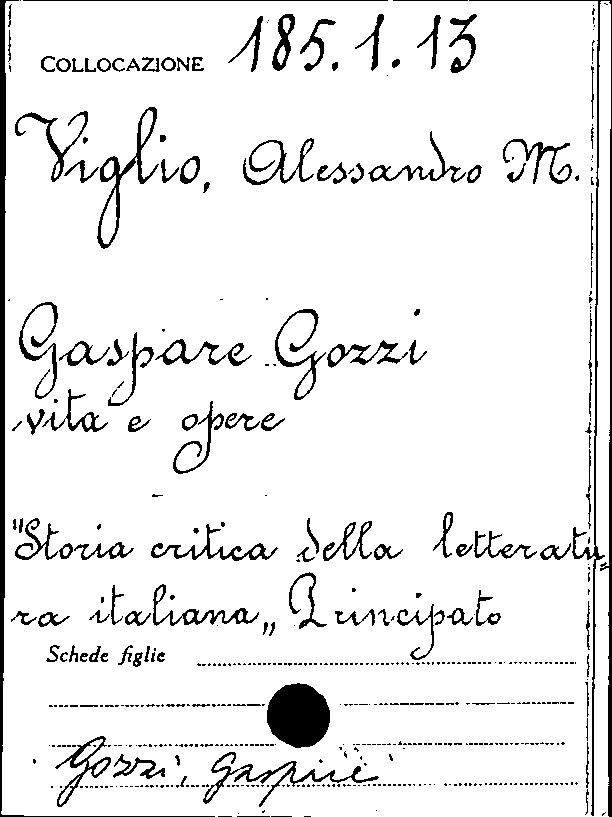 COLLOCAZIONE 185.1.13
Viglio, Alessandro M.
Gaspare Gozzi
vita e opere
"Storia critica della letteratu„
ra italiana„ Principato
Schede figlie
Gozzi, Gaspare